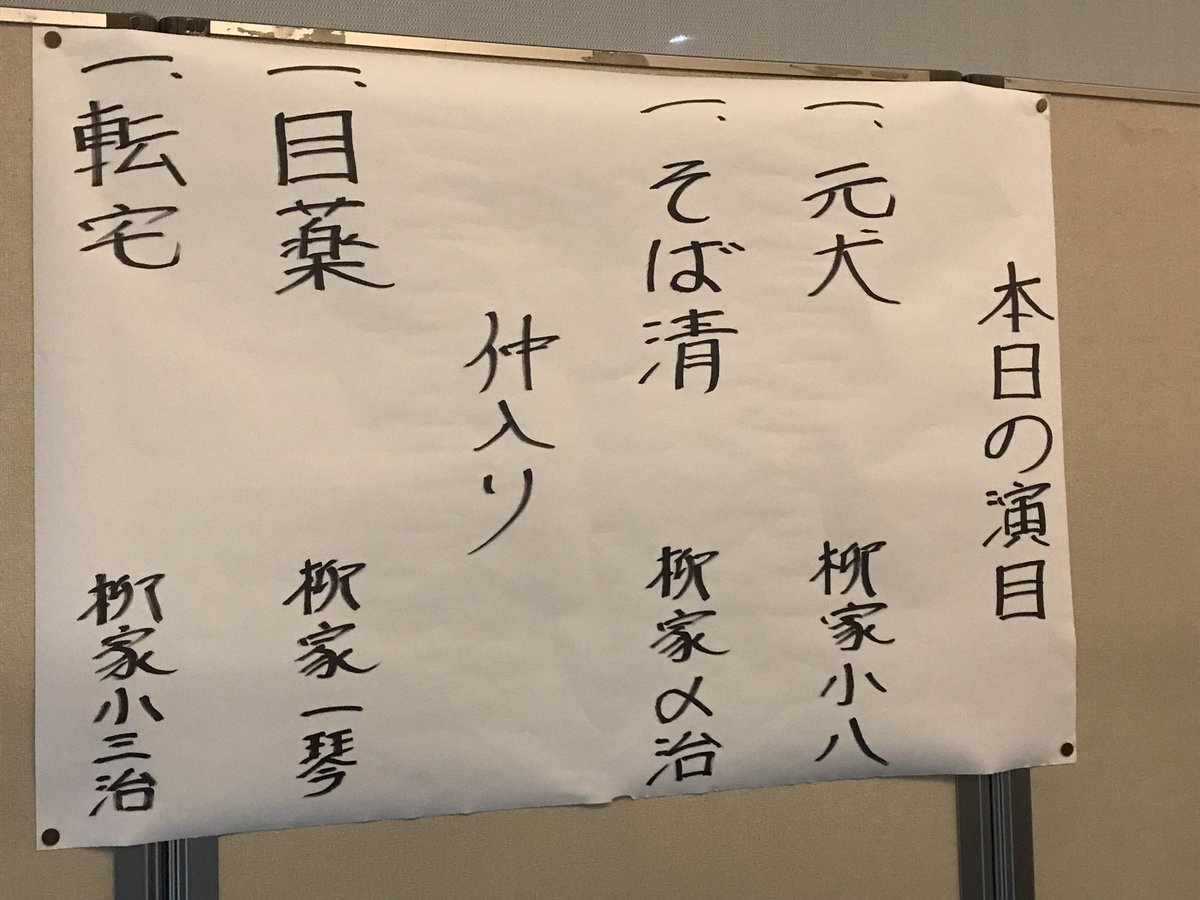 本日の演目
一、元犬 柳家小八
一、そば清 柳家〆治
仲入り
一、目薬 柳家一琴
一、転宅 柳家小三治